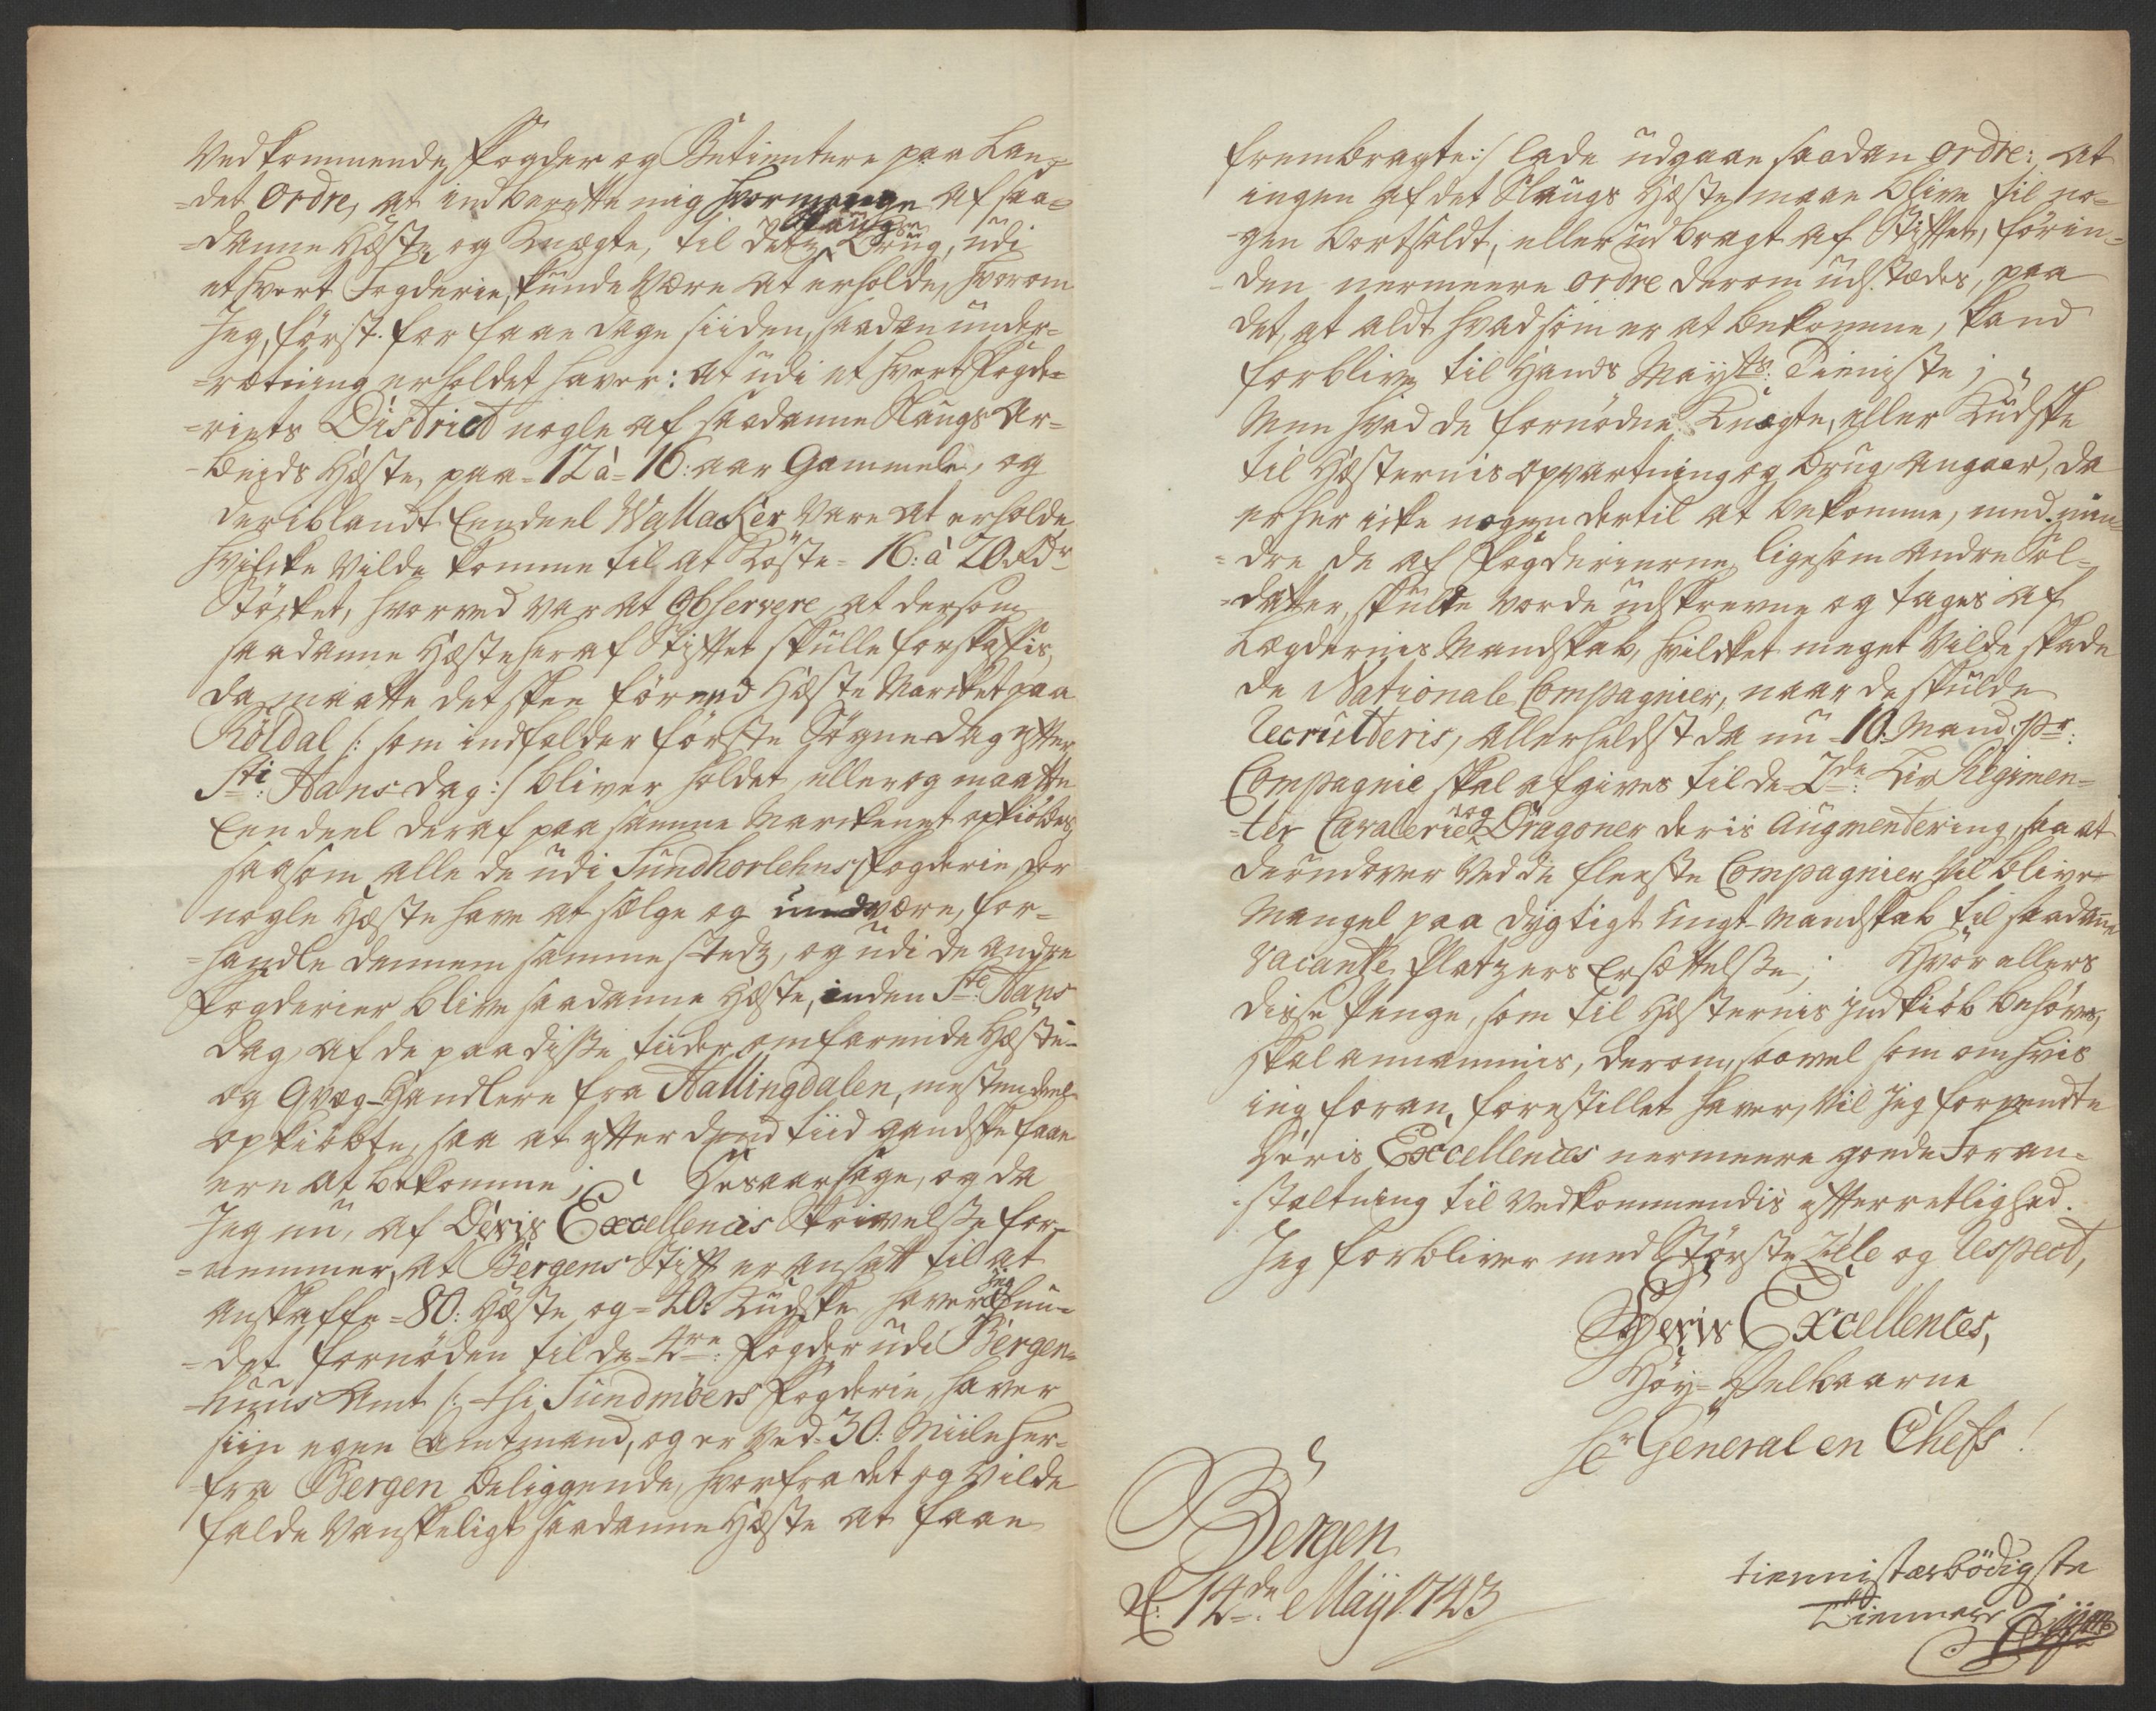 Vedkommende Fogder og Betientere paa Lan-
=det Ordre, at indberette mig hvormange af saa=
=danne Hæste og Knægte, til detz Slaugs Brug, udi
et hvert Fogderie, kunde være at erholde, hvorom
Jeg, först for faae dage siiden, saadan under=
=rætning erholdet haver: at udi et hvert Fogde=
=riets District nogle af saadanne Slaugs Ar=
=beids Hæste, paa = 12 à = 16: aar Gammele, og
deriblandt Eendeel Wallaker vare at erholde
hvilcke vilde komme til at Köste = 16: à 20 Rdr
Stöcket, hvorved var at Observere, at dersom
saadanne Hæste her af Stiftet skulle forskaffis,
da maatte det skee förend Hæste Marcket paa
Röldal /: som indfalder förste Sögne dag efter
Sti: Hans dag :/ bliver holdet, eller og maatte
Een deel deraf paa samme Marckenet opkiöbes,
saasom alle de udi Sundhorlehns Fogderie, der
nogle Hæste have at sælge og undvære, for=
=handle dennem sammestedz, og udi de andre
Fogderier blive saadanne Hæste, inden Sti: Hans
dag, af de paa disse tiider omfarende Hæste-
og Qvæg-Handlere fra Hallingdalen, mestendeel
opkiöbte, saa at efter dend tiid gandske faae
ere at bekomme; Desaarsage, og da
Jeg nu, af Deris Excellences Skrivelsse for=
=nemmer, at Bergens Stift er ansatt til at
anskaffe = 80: Hæste og = 20: Kudske haver jeg fun=
=det fornöden til de = 4re: Fogder udi Bergen=
=huus Amt /: thi Sundmöers Fogderie, haver
siin egen Amtmand, og er ved = 30: Miile her=
=fra Bergen beliggende, hvorfra det og vilde
falde vanskeligt saadanne Hæste at faae
frembragte :/ lade udgaae saadan ordre: at
ingen af det Slaugs Hæste maae blive til no=
=gen bortsoldt, eller udbragt af Stiftet, förin=
=den nermeere ordre derom udstædes, paa
det, at aldt hvad som er at bekomme, kand
forblive til Hands Mayts: Tieniste;
Men hvad de fornödne Knægte, eller Kudske
til Hæsternis opvartning og brug angaar, da
er her icke nogen dertil at bekomme, med min=
=dre de af Fogderierne, ligesom andre Sol=
=datter, skulle vorde udskrevne og tages af
Lægdernis Mandskab, hvilcket meget vilde skade
de Nationale Compagnier, naar de skulde
recruteris, allerhelst da nu = 10: Mand pr:
Compagnie skal afgives til de = 2de: Liv Regimen=
=ter Cavalerie og Dragoner deris Augmentering, saa at
derudover ved de fleeste Compagnier vil blive
Mangel paa dygtigt ungt mandskab til saadanne
vacante Platzers Ersættelsse; Hvor allers
disse Penge, som til Hæsternis Indkiöb behöves,
skal annammis, derom, saavel som om hvis
ieg foran, forestillet haver, vil jeg forvendte
Deris Excellences nermeere goede Foran=
=staltning til vedkommendis efterretlighed.
Jeg forbliver med Störste Zéle og Respect,
Deris Excellences,
Höy-Velbaarne
Hr General en Chefs!
Bergen
d: 14de May 1743
tiennistærbödigste
Tiennere